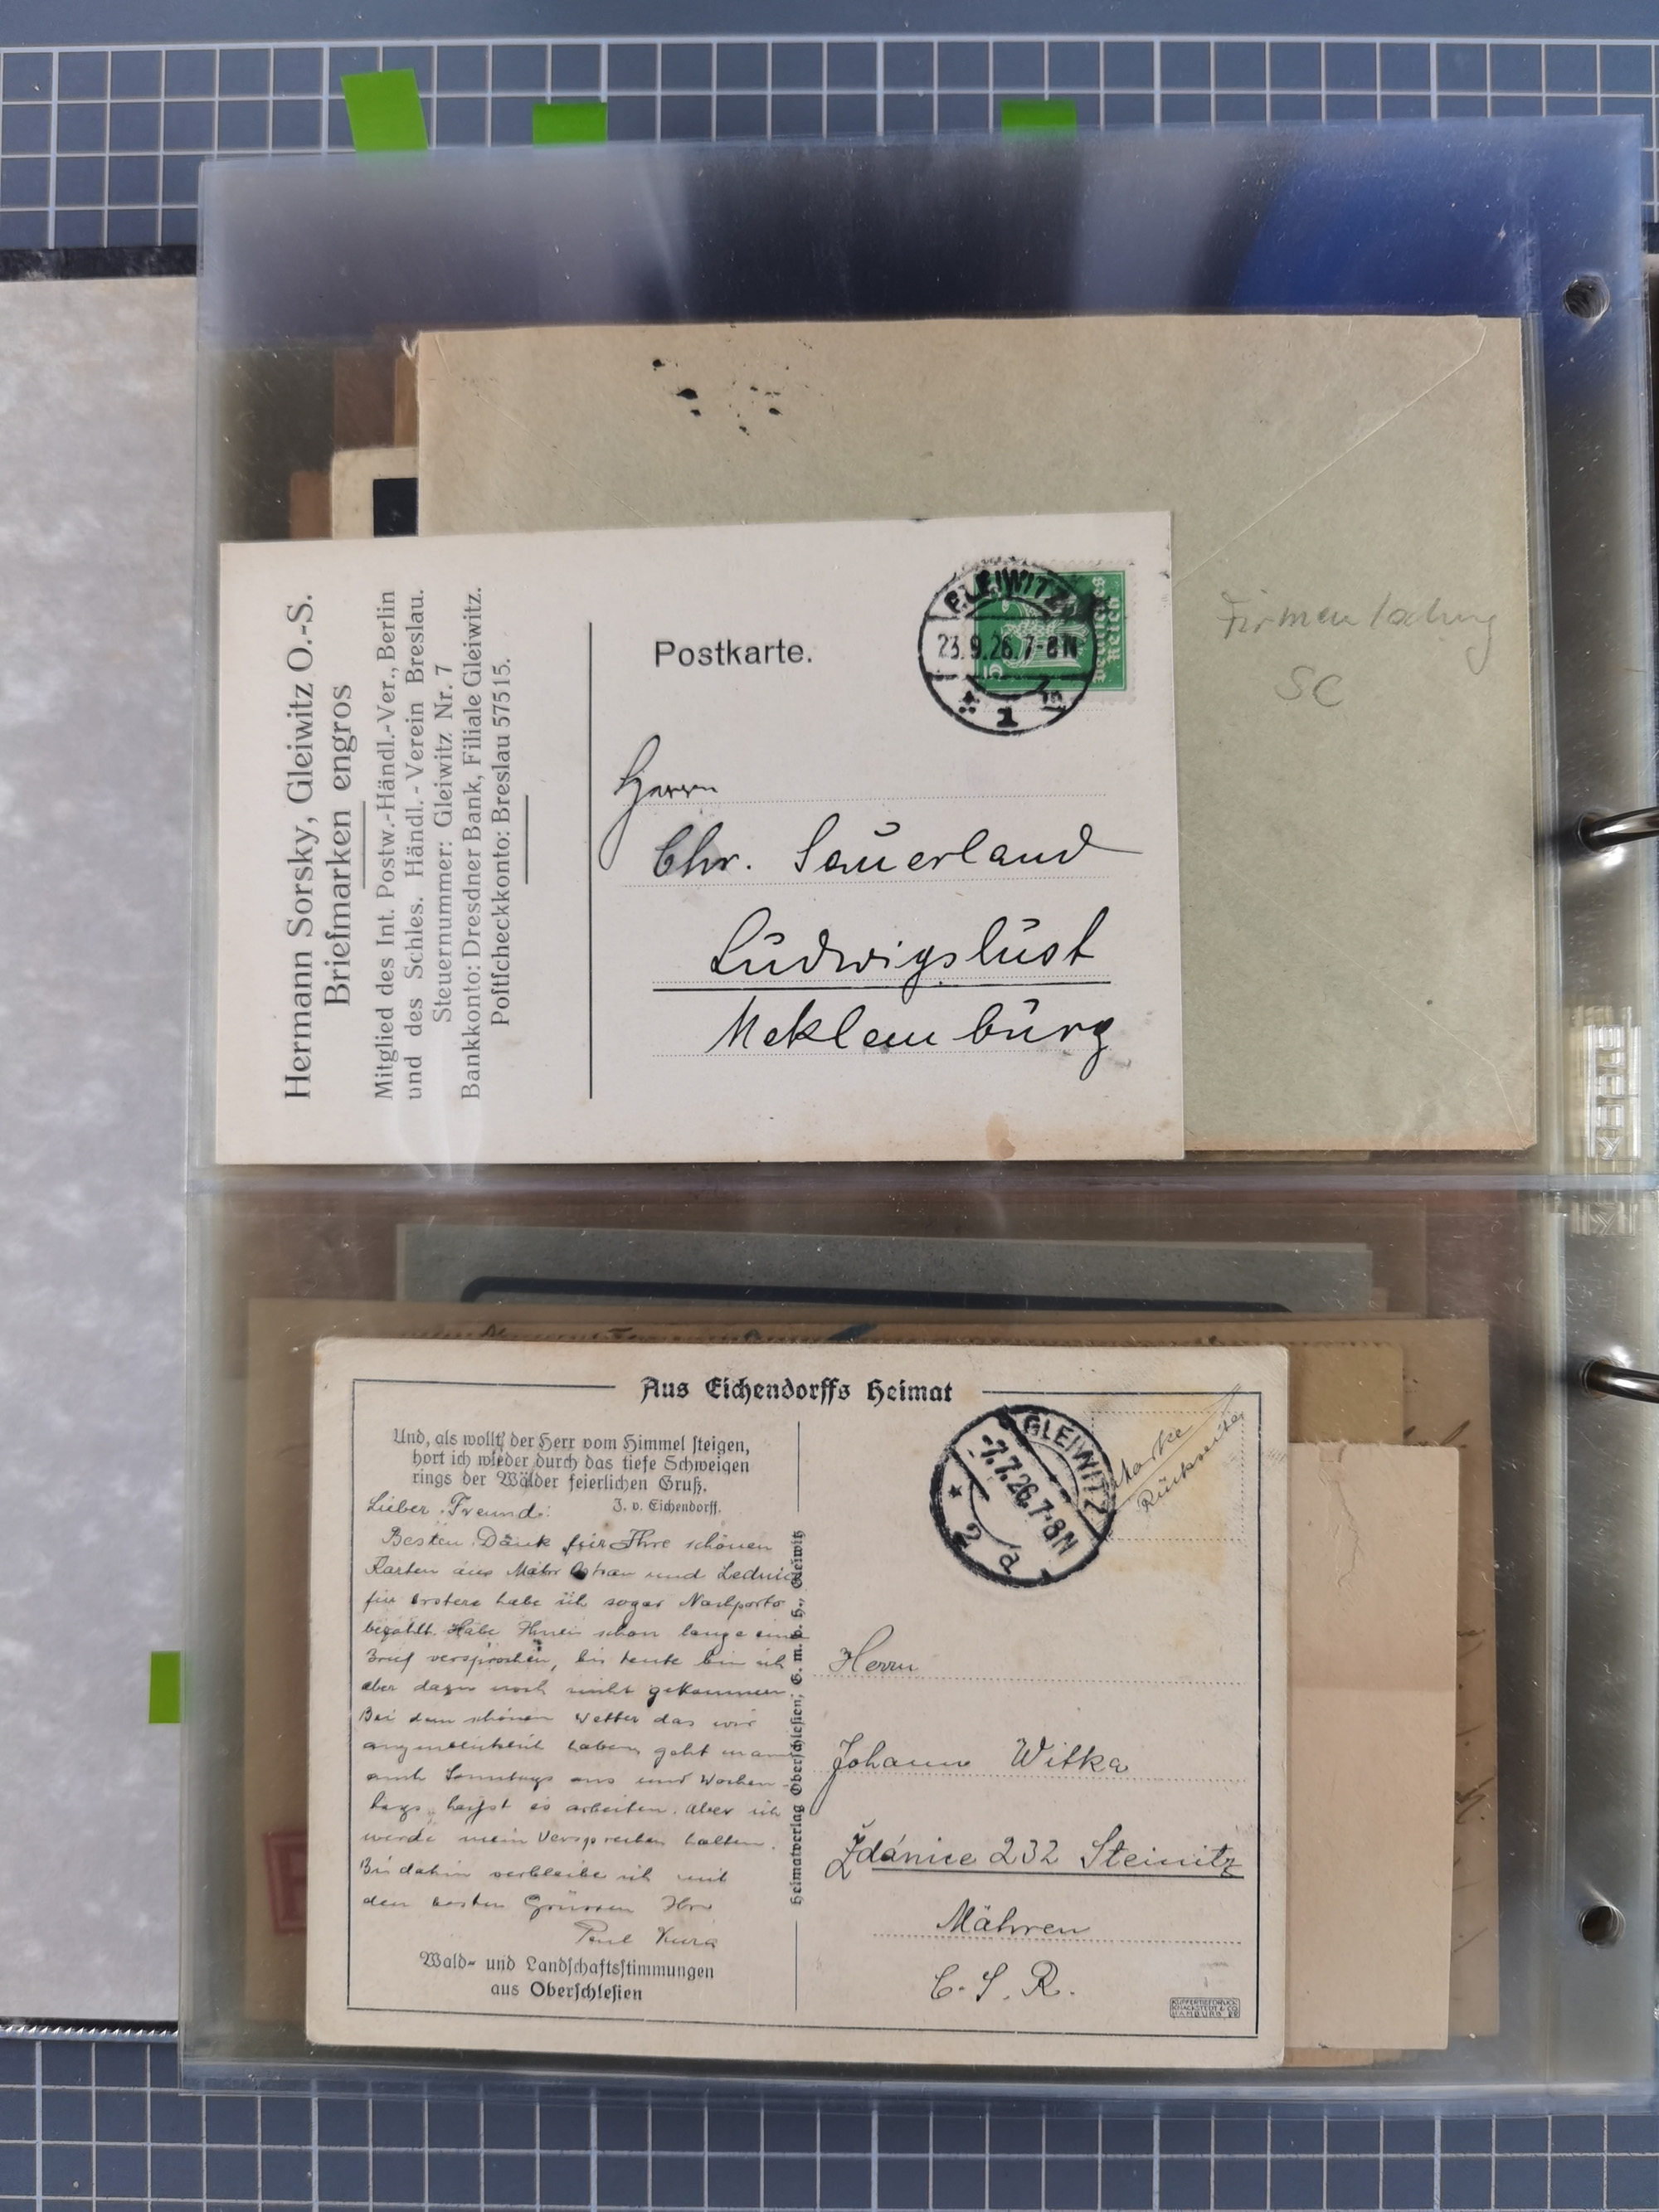 Hermann Sorsky, Gleiwitz O.-S.
Briefmarken engros
Mitglied des Int. Postw.-Händl.-Ver., Berlin
und des Schles. Händl.-Verein Breslau.
Steuernummer: Gleiwitz Nr. 7
Bankkonto: Dresdner Bank, Filiale Gleiwitz.
Poſtſcheckkonto: Breslau 57515.
Postkarte.
GLEIWITZ
23.9.26.7-8N
1
5
Deutsches
Reich
Herrn
Chr. Sauerland
Ludwigslust
Meklemburg
Firmenlochung
SC
Aus Eichendorffs Heimat
Und, als wollt' der Herr vom Himmel ſteigen,
hört ich wieder durch das tiefe Schweigen
rings der Wälder feierlichen Gruß.
J. v. Eichendorff.
Lieber Freund:
Besten Dank für Ihre schönen
Karten aus Mähr Ostrau und
für erstere habe ich sogar Nachporto
bezahlt. Habe Ihnen schon lange einen
Brief versprochen, bis heute bin ich
aber dazu noch nicht gekommen
Bei dem schönen Wetter das wir
augenblicklich haben, geht man
auch Sonntags aus und Wochen-
tags, heisst es arbeiten. Aber ich
werde mein Versprechen halten.
Bis dahin verbleibe ich mit
den besten Grüssen Ihr
Paul
Wald- und Landſchaftsſtimmungen
aus Oberſchleſien
Heimatverlag Oberſchleſien, G. m. b. H., Gleiwitz
GLEIWITZ
-7.7.26.7-8N
* 2 a
Marke
Rückseite
Herrn
Johann Witka
Ždánice 232 Steinitz
Mähren
C. S. R.
KUPFERTIEFDRUCK
KNACKSTEDT & CO
HAMBURG 22